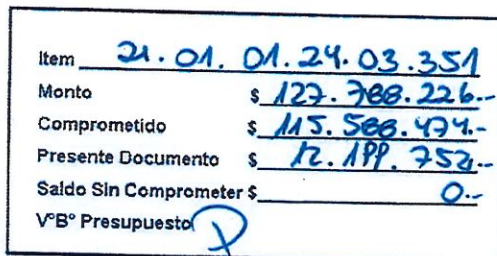 Item 21.01.01.24.03.351
Monto $ 127.788.226.-
Comprometido $ 115.588.474.-
Presente Documento $ 12.199.752.-
Saldo Sin Comprometer $ 0.-
V°B° Presupuesto